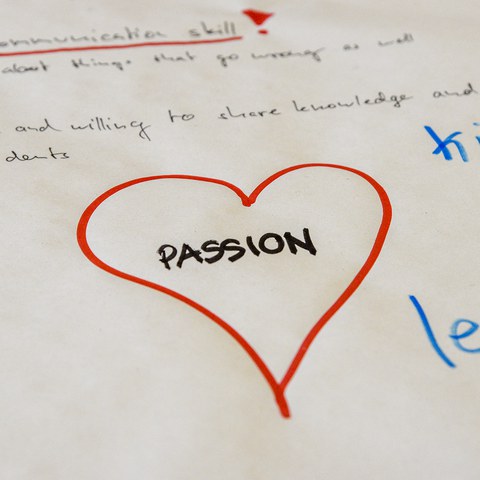 ommunication skill!
about things that go wrong as well
and willing to share knowledge and
dents
ki
PASSION
le